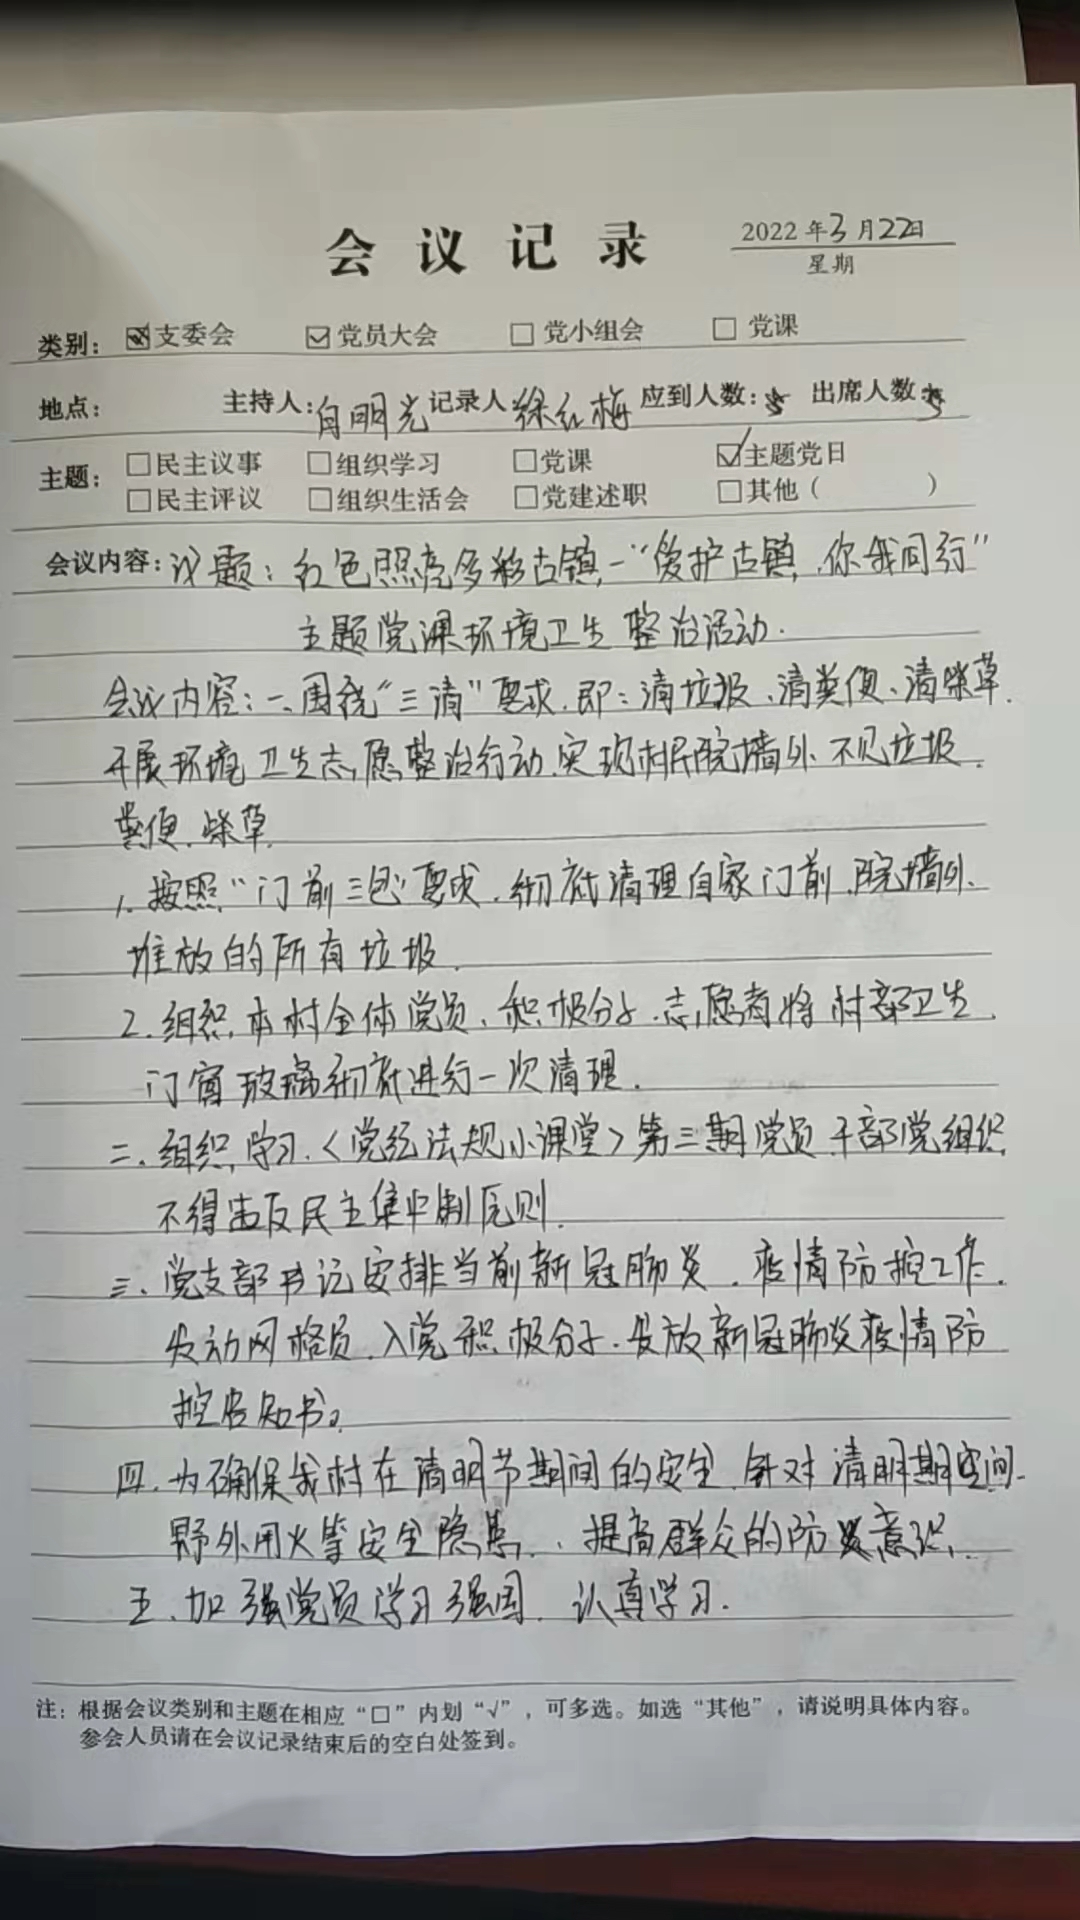 会议记录
2022年3月22日
星期
类别: 支委会 ☑党员大会 □党小组会 □党课
地点: 主持人:白明光 记录人 徐红梅 应到人数: 出席人数:
主题: □民主议事 □组织学习 □党课 ☑主题党日
□民主评议 □组织生活会 □党建述职 □其他( )
会议内容:议题:红色照亮多彩古镇,一"爱护古镇,你我同行"
主题党课环境卫生整治活动.
会议内容:一、围绕"三清"要求.即:清垃圾、清粪便、清柴草.
开展环境卫生志愿整治行动.实现村民院墙外不见垃圾.
粪便.柴草.
1.按照"门前三包"要求.彻底清理自家门前.院墙外.
堆放的所有垃圾.
2.组织本村全体党员、积极分子.志愿者将村部卫生.
门窗玻璃彻底进行一次清理.
二.组织学习<党纪法规小课堂>第三期党员干部党组织
不得违反民主集中制原则.
三、党支部书记安排当前新冠肺炎.疫情防控工作.
发动网格员.入党积极分子.发放新冠肺炎疫情防
控告知书。
四.为确保我村在清明节期间的安全.针对清明期间
野外用火等安全隐患.、提高群众的防火意识.
五、加强党员学习强国.认真学习.
注:根据会议类别和主题在相应"□"内划"√",可多选。如选"其他",请说明具体内容。
参会人员请在会议记录结束后的空白处签到。